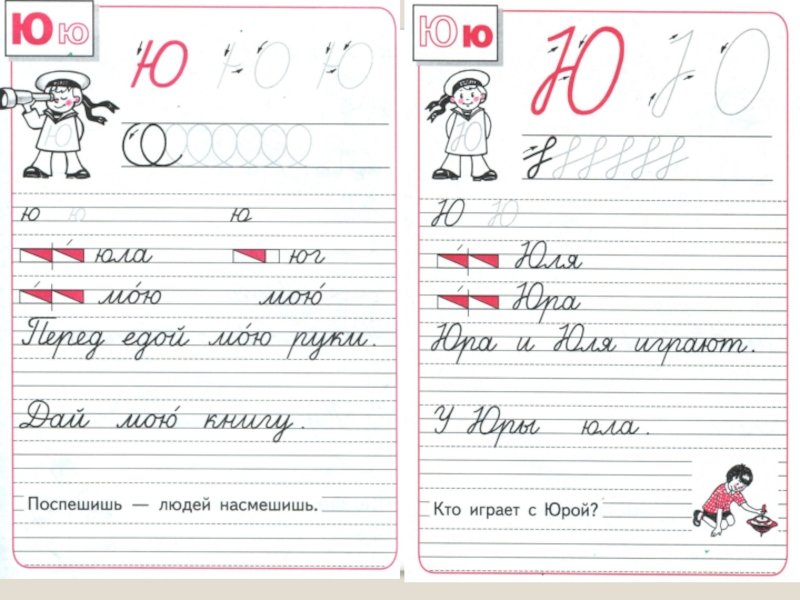 Ю ю
Ю Ю Ю
Ю
ю ю ю
юла юг
мо́ю мою́
Перед едой мо́ю руки.
Дай мою́ книгу.
Поспешишь — людей насмешишь.
Ю ю
Ю
Ю
Ю Ю
Юля
Юра
Юра и Юля играют.
У Юры юла.
Кто играет с Юрой?